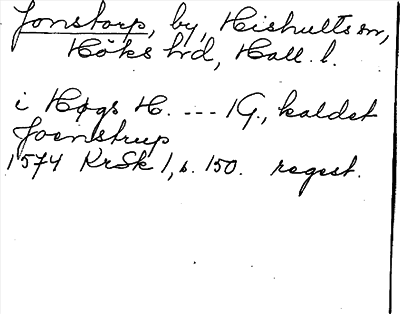 Jonstorp, by, Hishults sn,
Höks hrd, Hall. l.
i Høgs H. --- 1G., kaldet
Joenstrup
1574 KrSk 1, s. 150. regest.